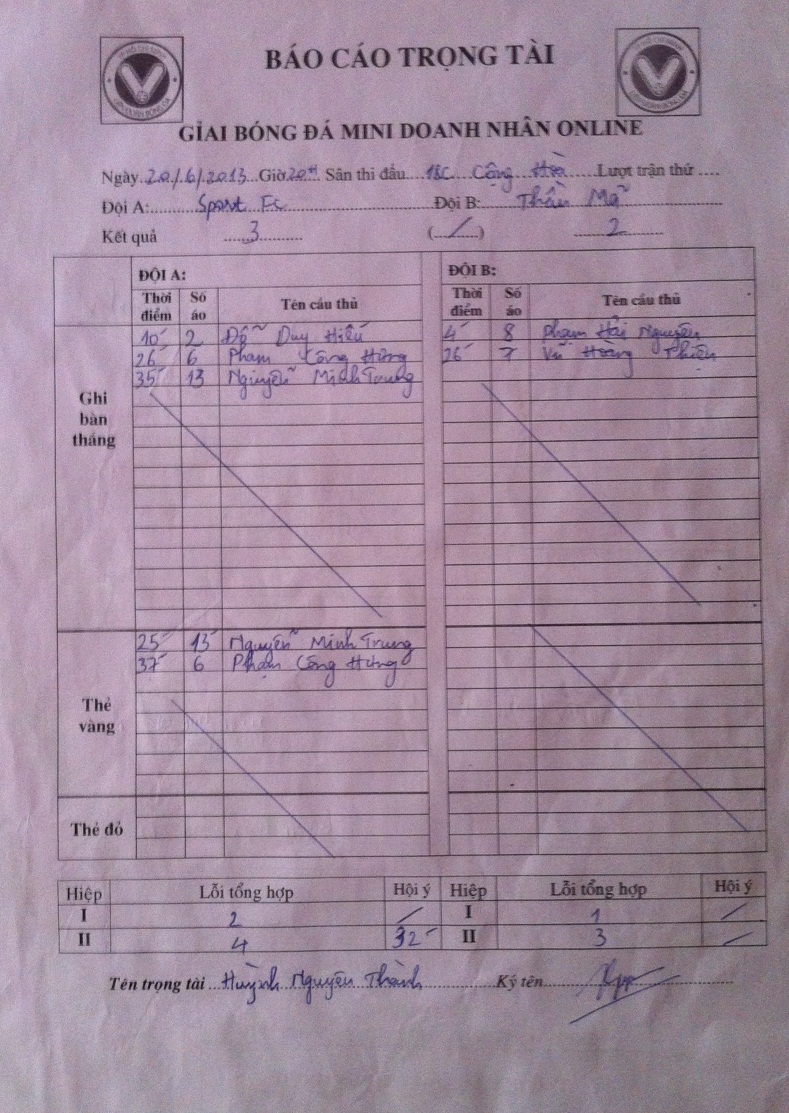 BÁO CÁO TRỌNG TÀI
GIẢI BÓNG ĐÁ MINI DOANH NHÂN ONLINE
Ngày 20/6/2013 Giờ 20H Sân thi đấu 18C Cộng Hòa Lượt trận thứ ....
Đội A: Sport Fc Đội B: Thần Mã
Kết quả 3 (/) 2
ĐỘI A: ĐỘI B:
Thời điểm Số áo Tên cầu thủ Thời điểm Số áo Tên cầu thủ
Ghi bàn thắng
10' 2 Đỗ Duy Hiếu 4' 8 Phạm Hải Nguyên
26' 6 Phạm Công Hưng 26' 7 Vũ Hoàng Thiên
35' 13 Nguyễn Minh Trung
Thẻ vàng
25' 13 Nguyễn Minh Trung
37' 6 Phạm Công Hưng
Thẻ đỏ
Hiệp Lỗi tổng hợp Hội ý Hiệp Lỗi tổng hợp Hội ý
I 2 / I 1 /
II 4 32' II 3 /
Tên trọng tài Huỳnh Nguyên Thành Ký tên